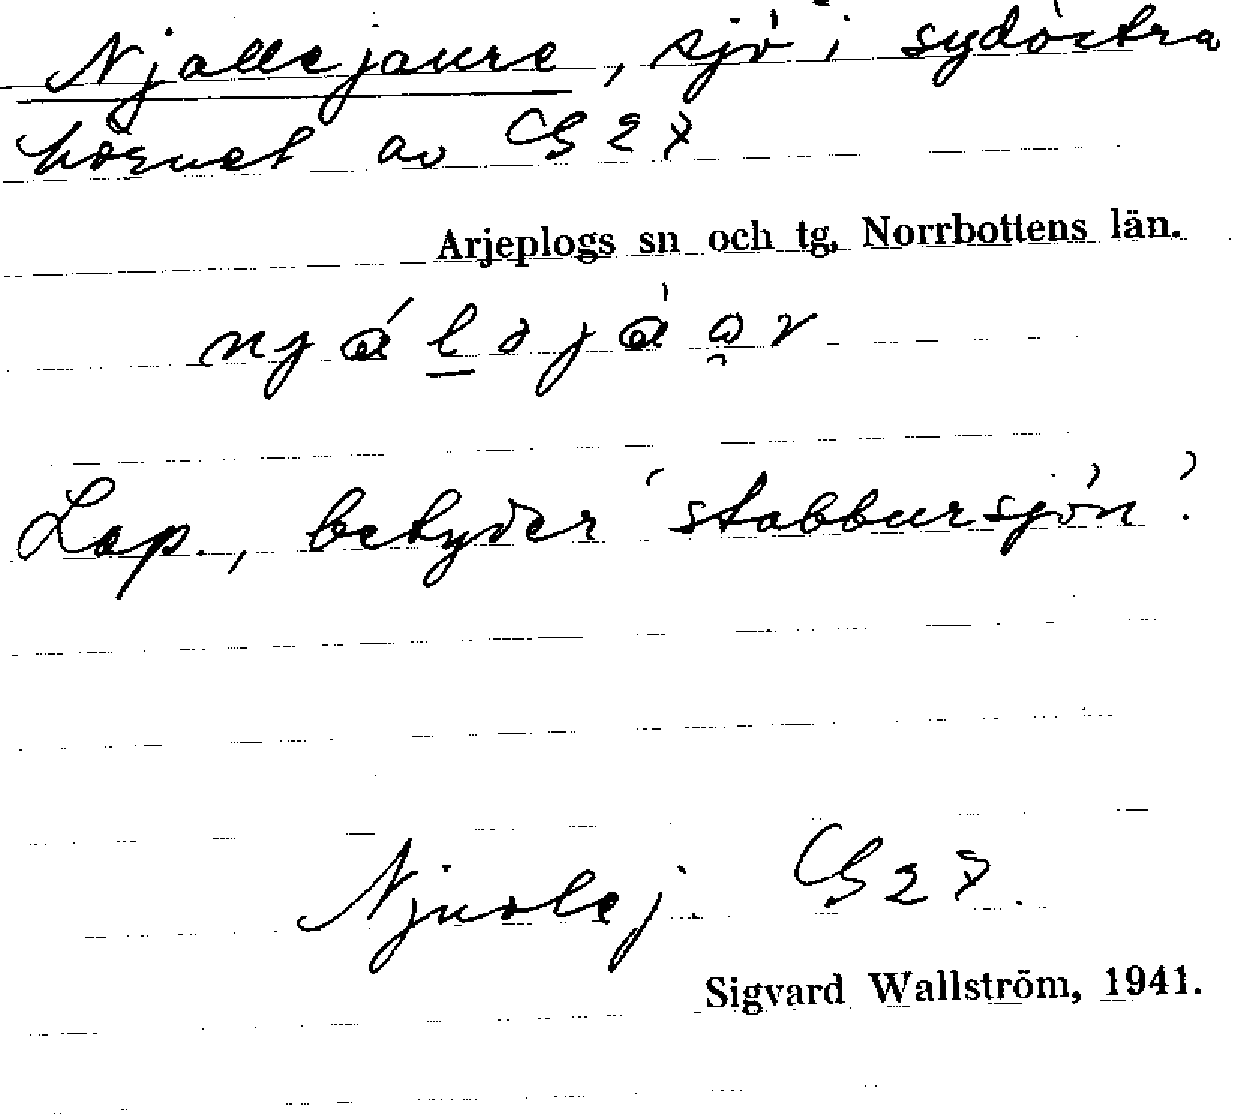 Njallejaure, sjö i sydöstra
hörnet av CG 27
Arjeplogs sn och tg, Norrbottens län.
Lap., betyder 'stabbursjön'.
Njuolej CG 27.
Sigvard Wallström, 1941.